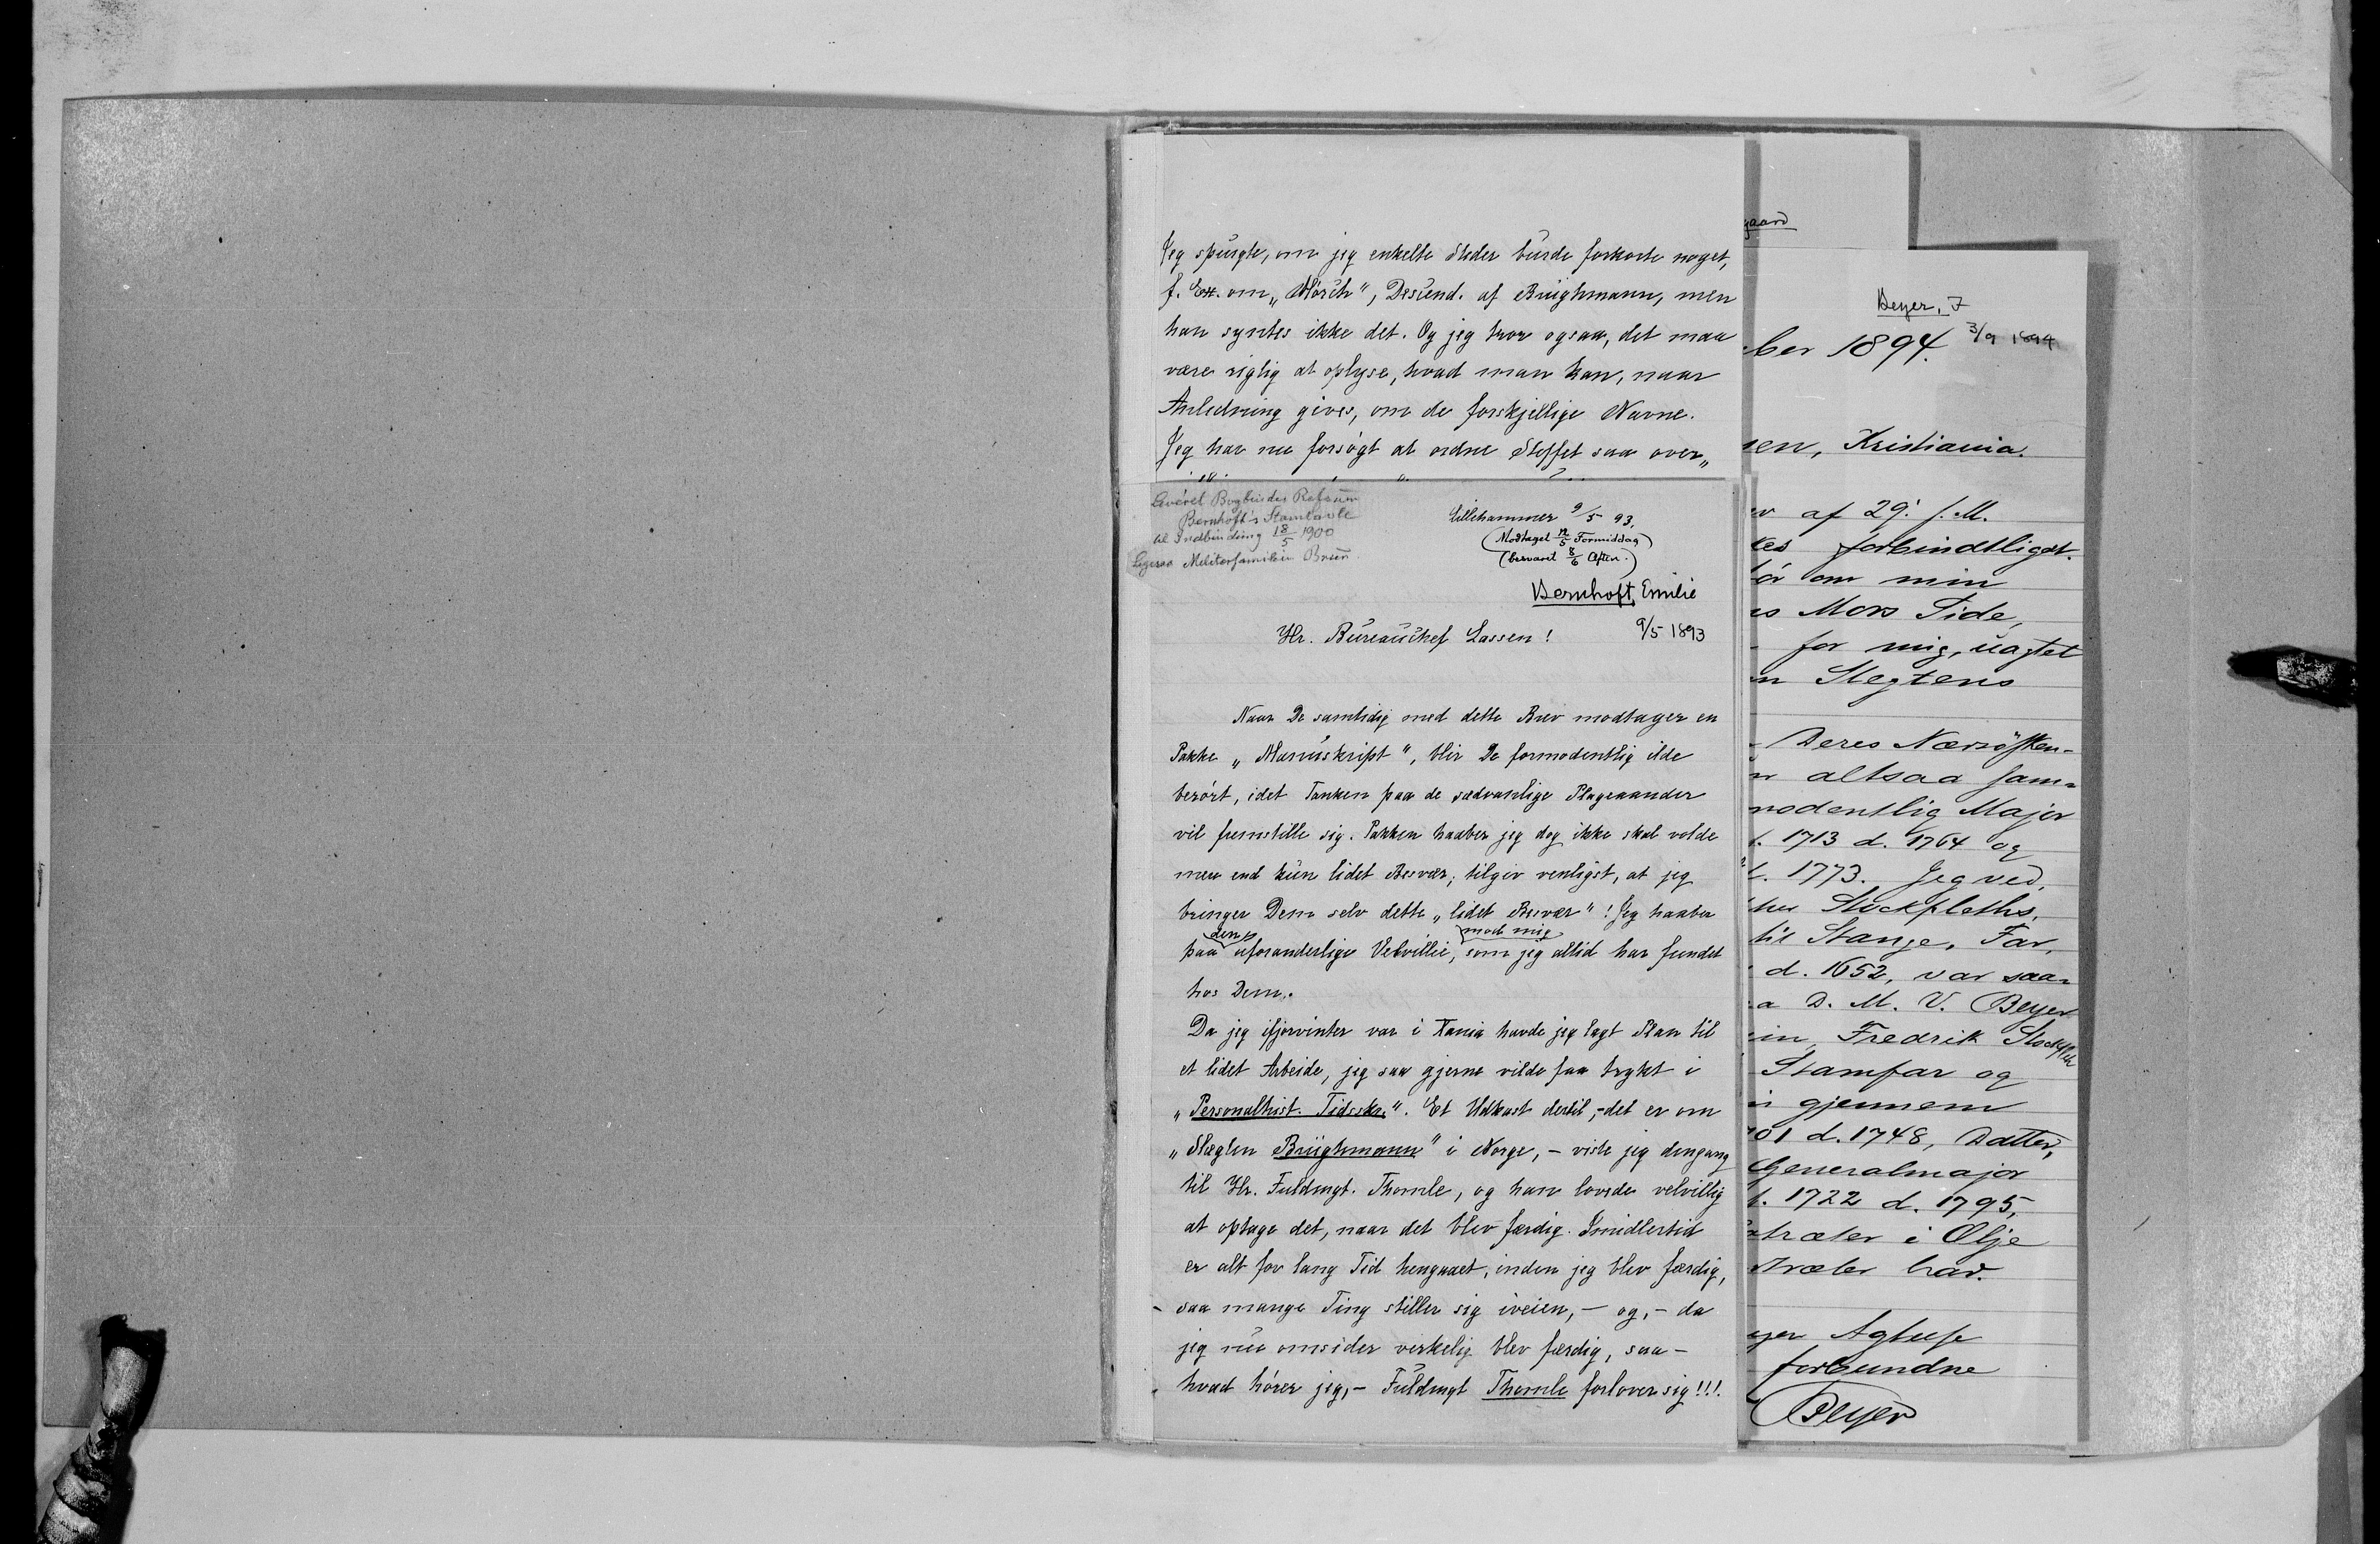 Jeg spurgte, om jeg enkelte Steder burde forkorte noget,
f. Ex. om „Mörch", Descend. af Brüghmann, men
han syntes ikke det. Og jeg tror ogsaa, det maa
være rigtig at oplyse, hvad man kan, naar
Anledning gives, om de forskjellige Navne.
Jeg har nu forsögt at ordne Stoffet saa over„
Leveret Bogbinder Refsum
Bernhoft's Stamtavle
til Indbinding 18/5 1900
Ligesaa Militærfamilien Bruun
Lillehammer 9/5 93.
(Modtaget 12/5 Formiddag)
(besvaret 8/6 Aften.)
Bernhoft, Emilie
9/5 1893
Hr. Bureauchef Lassen!
Naar De samtidig med dette Brev modtager en
Pakke „Manuskript", blir De formodentlig ilde
berört, idet Tanken paa de sædvanlige Plageaander
vil fremstille sig. Pakken haaber jeg dog ikke skal volde
mer end kun lidet Besvær; tilgiv venligst, at jeg
bringer Dem selv dette „lidet Besvær"! Jeg haaber
paa den uforanderlige Velvillie, som jeg altid har fundet mod mig
hos Dem.
Da jeg ifjorvinter var i Xania havde jeg lagt Plan til
et lidet Arbeide, jeg saa gjerne vilde faa trykt i
„Personalhist. Tidsskr.". Et Udkast dertil, - det er om
„Slægten Brüghmann" i Norge, - viste jeg dengang
til Hr. Fuldmgt. Thomle, og han lovede velvillig
at optage det, naar det blev færdig. Imidlertid
er alt for lang Tid hengaaet, inden jeg blev færdig,
saa mange Ting stiller sig iveien, - og, - da
jeg nu omsider virkelig blev færdig, saa -
hvad hörer jeg, - Fuldmgt Thomle forlover sig!!!
gaard
Beyer, F
3/9 1894
ber 1894.
sen, Kristiania.
ev af 29. f. M.
kes forbindtligst.
för om min
es Mors Side,
for mig, uagtet
n Slegtens
Deres Nærsösken-
n altsaa sam-
modentlig Major
f. 1713 d. 1764 og
f. 1773. Jeg ved,
hes Stockfleths,
til Stange, Far,
d. 1652, var saa-
a D. M. V. Beyer
in, Fredrik Stockfleth
Stamfar og
gjennem
01 d. 1748, Datter,
Generalmajor
f. 1722 d. 1795,
træter i Olje
træter har.
yer Agtelse
forbundne
Beyer